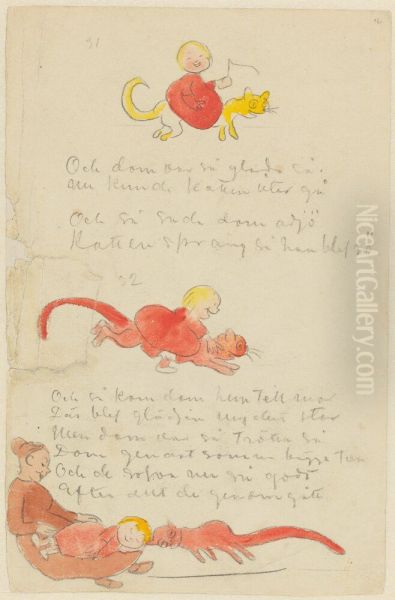 31
Och dom var så glada så.
nu kunde katten åter gå
Och så sade dom adjö
Katten sprang så han blef
32
Och så kom dom hem tell mor
Där blef glädjen mycket stor
Men dom var så trötta så
Dom genast somna bägge två
Och de sofva nu så godt
Efter allt de genomgått
NiceArtGallery.com